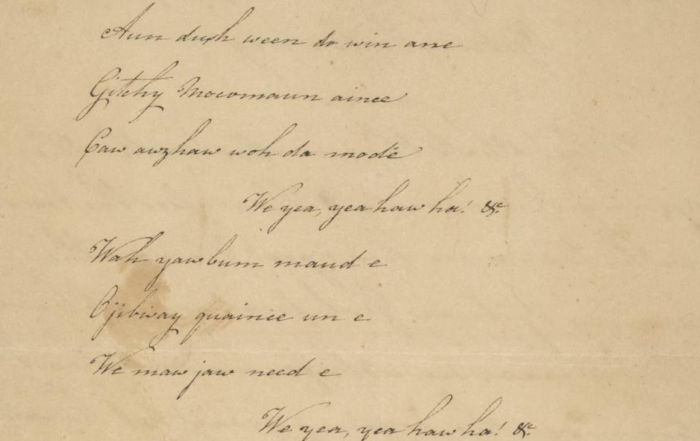 Aun dush ween do win ane
Gitchy Mocomaun aince
Caw awzhaw woh da modë
We yea, yea haw ha! &c.
Wah yaw bum maud e
Ojibway quaince un e
We maw jaw need e
We yea, yea haw ha! &c.